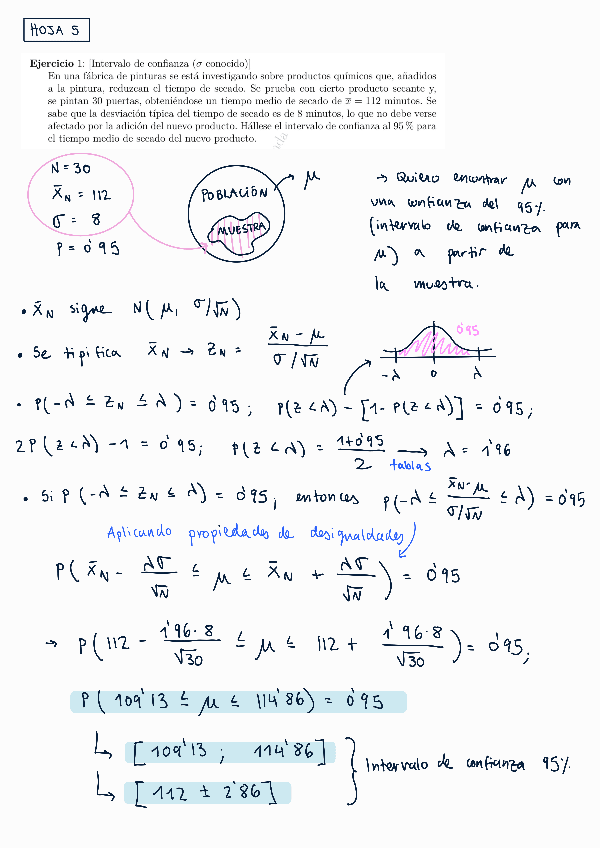 HOJA 5
Ejercicio 1: [Intervalo de confianza (σ conocido)]
En una fábrica de pinturas se está investigando sobre productos químicos que, añadidos
a la pintura, reduzcan el tiempo de secado. Se prueba con cierto producto secante y,
se pintan 30 puertas, obteniéndose un tiempo medio de secado de x̅ = 112 minutos. Se
sabe que la desviación típica del tiempo de secado es de 8 minutos, lo que no debe verse
afectado por la adición del nuevo producto. Hállese el intervalo de confianza al 95 % para
el tiempo medio de secado del nuevo producto.
N = 30
X̄N = 112
σ = 8
P = 0'95
POBLACIÓN
MUESTRA
μ
→ Quiero encontrar μ con
una confianza del 95%
(intervalo de confianza para
μ) a partir de
la muestra.
• X̄N sigue N(μ, σ/√N)
• Se tipifica X̄N → ZN = (X̄N - μ) / (σ/√N)
0'95
-λ 0 λ
• P(-λ ≤ ZN ≤ λ) = 0'95; P(Z<λ) - [1 - P(Z<λ)] = 0'95;
2P(Z<λ) - 1 = 0'95; P(Z<λ) = (1+0'95)/2 → λ = 1'96
tablas
• Si P(-λ ≤ ZN ≤ λ) = 0'95, entonces P(-λ ≤ (X̄N-μ)/(σ/√N) ≤ λ) = 0'95
Aplicando propiedades de desigualdades
P(X̄N - λσ/√N ≤ μ ≤ X̄N + λσ/√N) = 0'95
→ P(112 - 1'96·8/√30 ≤ μ ≤ 112 + 1'96·8/√30) = 0'95;
P(109'13 ≤ μ ≤ 114'86) = 0'95
[109'13 ; 114'86]
[112 ± 2'86]
Intervalo de confianza 95%